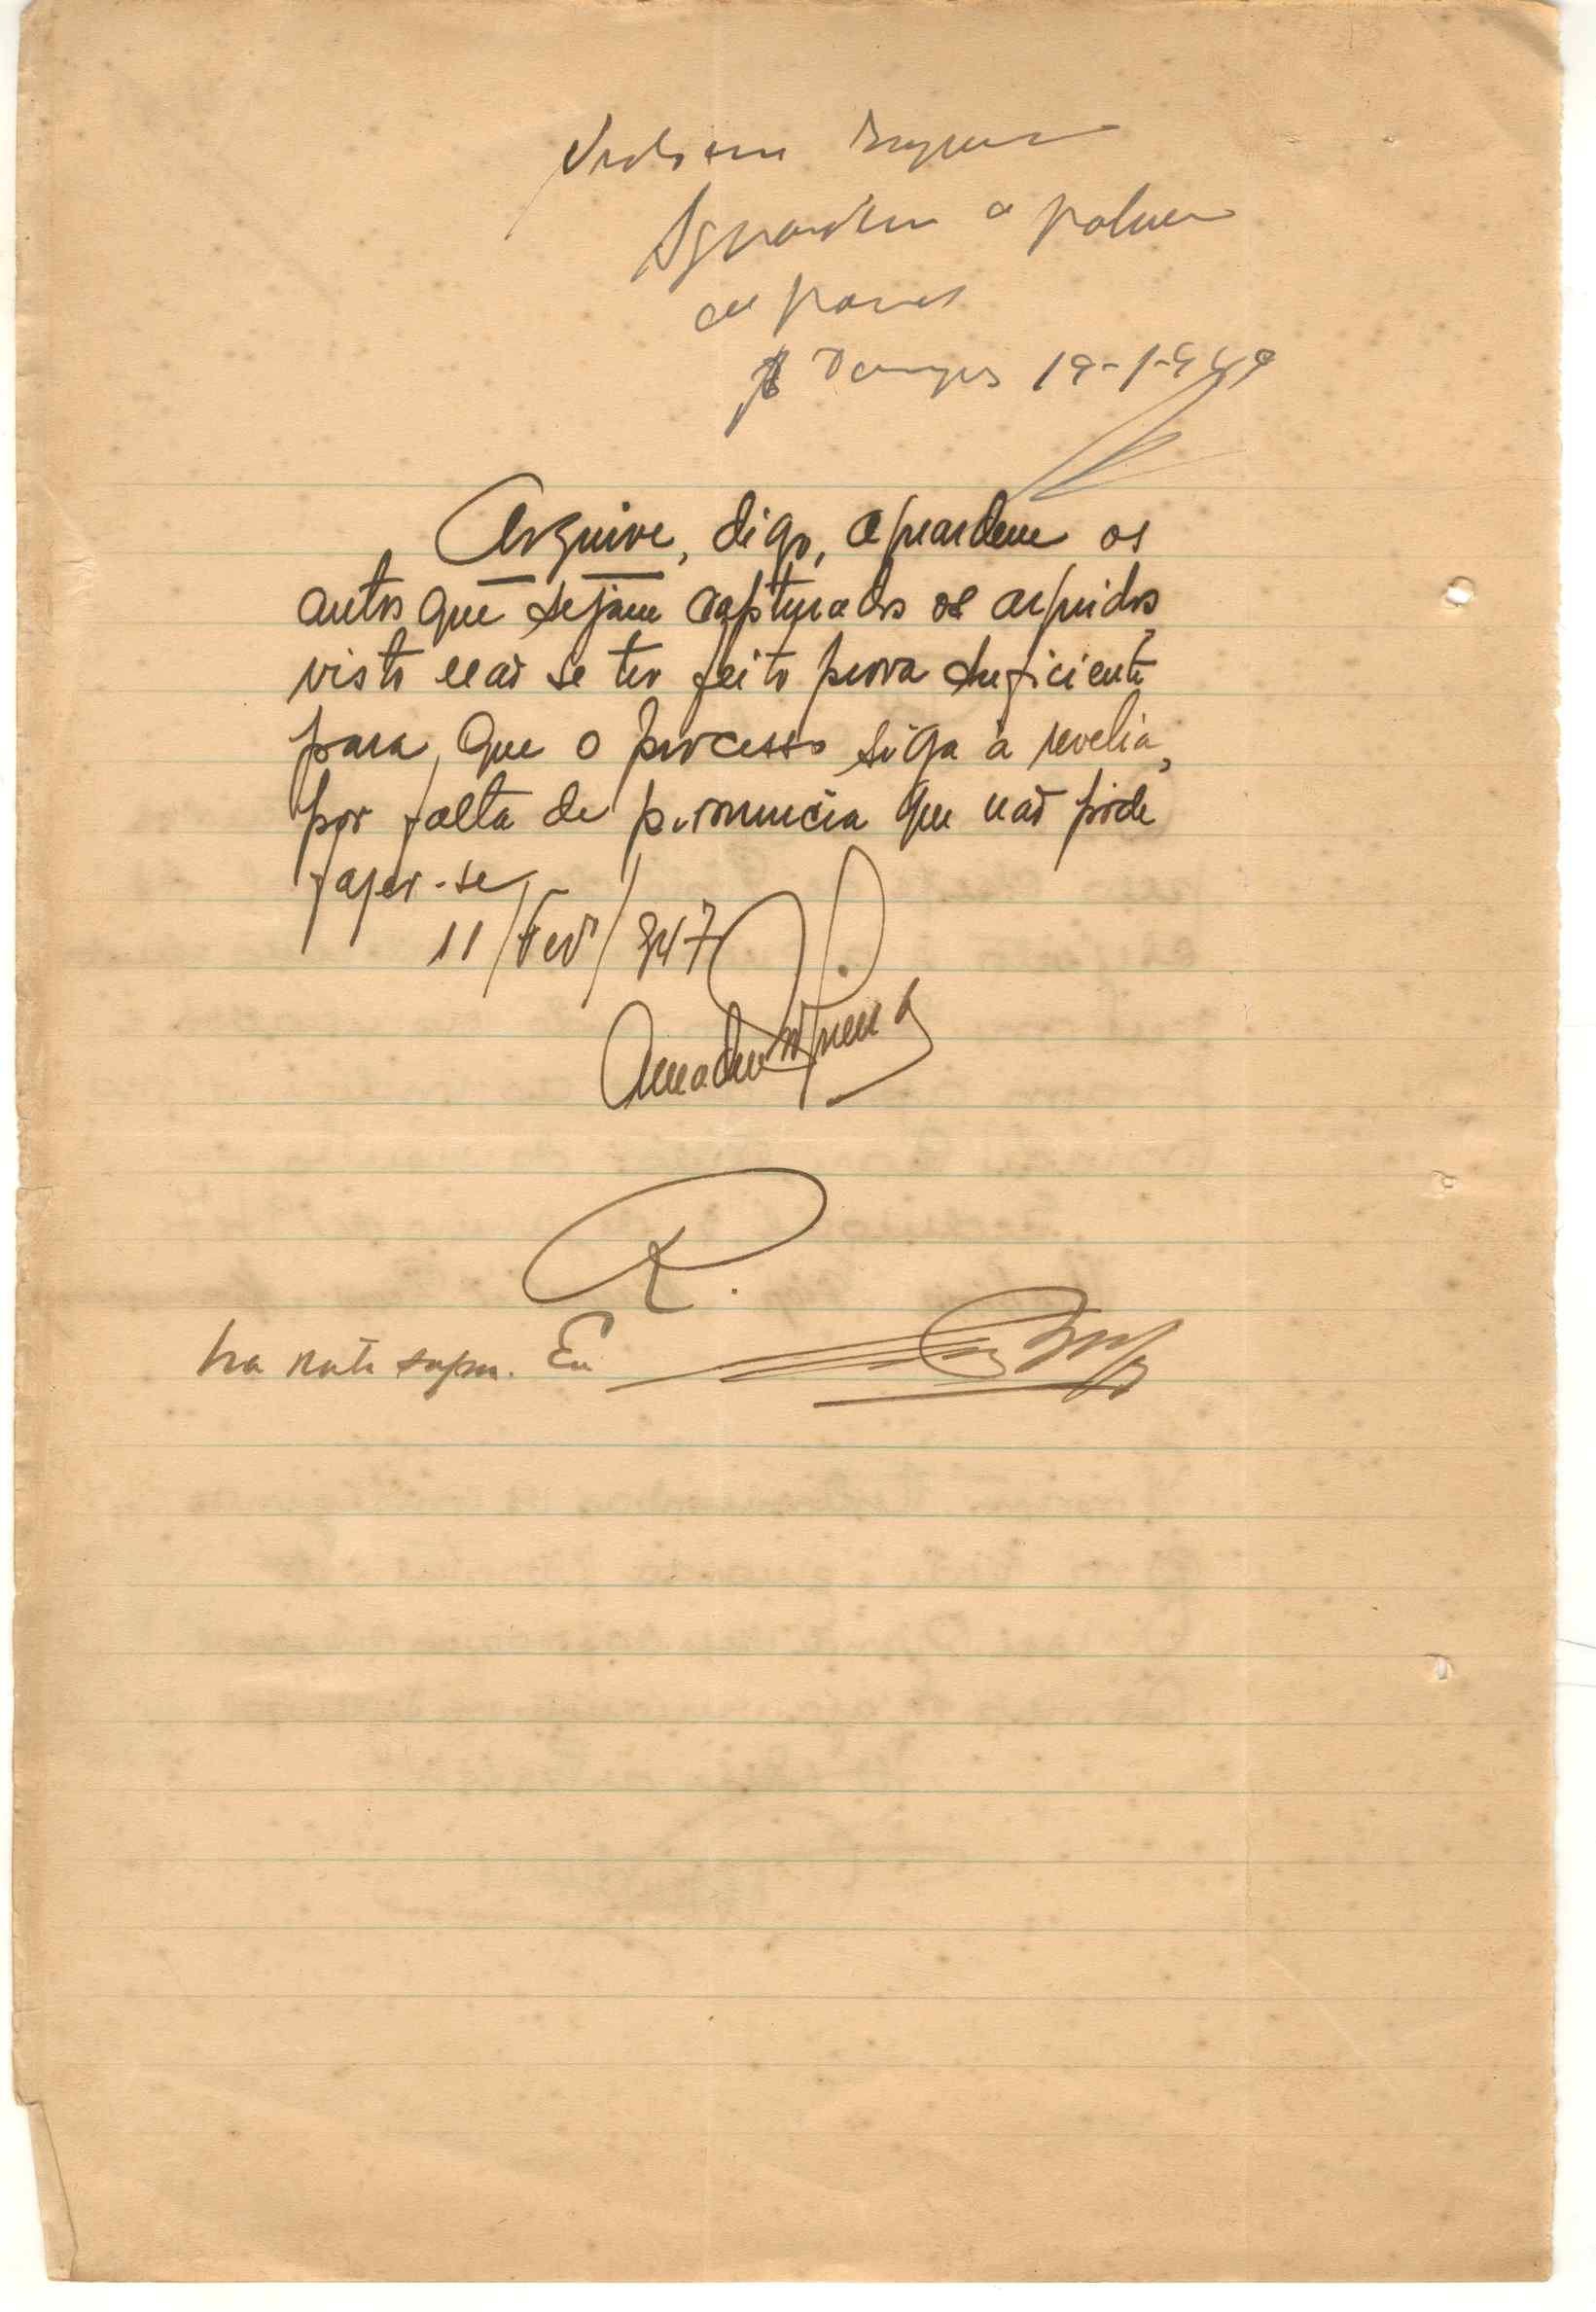 Visto em
Aguardem a
19-1-949
Arquive, digo, aguardem os
autos que sejam capturados os arguidos,
visto não se ter feito prova suficiente
para que o processo siga à revelia,
por falta de pronuncia que não pode
fazer-se
11/Fevº/947
Amadeu
R.
Na data supra. Eu